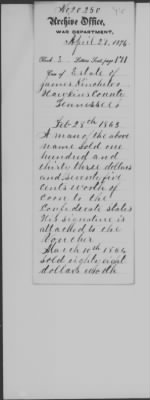 No 20250
Archive Office,
WAR DEPARTMENT,
April 21, 1876.
Book 3 Letters Sent, page 171
Case of Estate of
James Kincheloe
Hawkins County
Tennessee
Feb 28th 1863
A man of the above
name sold one
hundred and
thirty three dollars
and seventy five
cents worth of
corn to the
Confederate states
His signature is
attached to the
voucher
March 10th 1864
sold eighty eight
dollars worth